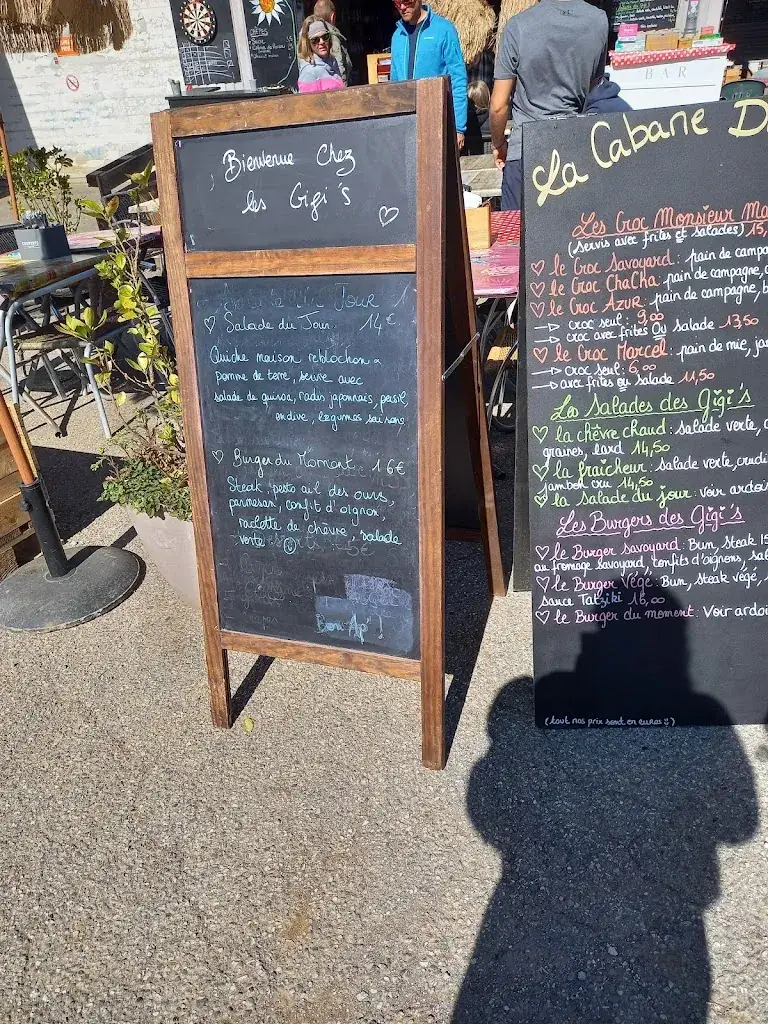 Bienvenue Chez
les Gigi's
Jour
Salade du Jour 14€
Quiche maison reblochon &
pomme de terre, servie avec
salade de quinoa, radis japonnais, persil,
endive, légumes saisons
Burger du Moment 16€
Steak, pesto ail des ours,
parmesan, confit d'oignon,
raclette de chèvre, salade
verte
Bon Ap'!
La Cabane D
Les Croc Monsieur Ma
(Servis avec frites et salades) 15,
le Croc Savoyard : pain de campa
le Croc ChaCha : pain de campagne,
le Croc Azur : pain de campagne, b
→ croc seul : 9,00
→ croc avec frites ou salade 13,50
le Croc Marcel : pain de mie, jam
→ croc seul : 6,00
→ avec frites ou salade 11,50
Les Salades des Gigi's
la chèvre chaud : salade verte,
graines, lard 14,50
la fraîcheur : salade verte, crudi
jambon cru 14,50
la salade du jour : voir ardoi
Les Burgers des Gigi's
le Burger savoyard : Bun, steak 15
au fromage savoyard, confits d'oignons, sal
le Burger Végé : Bun, steak végé,
sauce Tatziki 16,00
le Burger du moment : Voir ardoi
(tout nos prix sont en euros :)
BAR